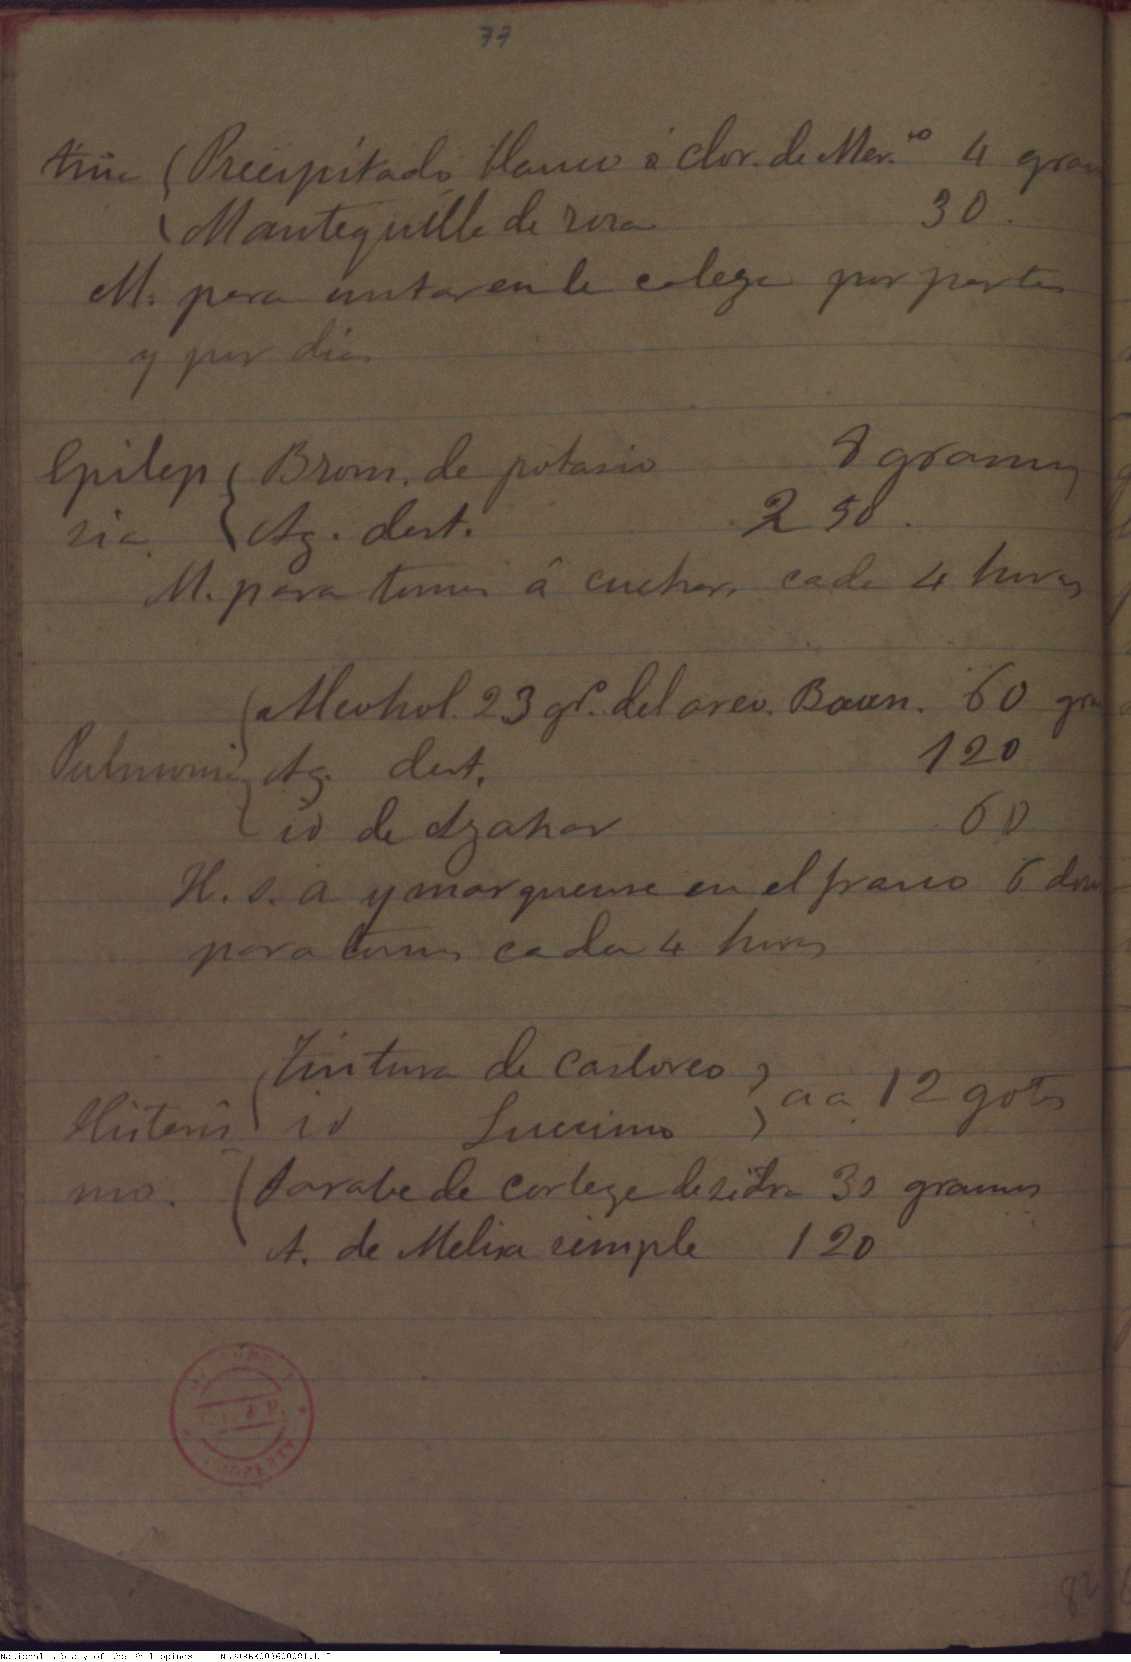 77
tiña { Precipitado blanco ó clor. de Mer.io 4 gram
Mantequilla de rosa 30.
M. para untar en la cabeza por partes
y por dias
Epilep { Brom. de potasio 8 gramos
sia. Ag. dest. 250.
M. para tomar á cuchar. cada 4 horas
Alcohol. 23 grº. del areo. Baum. 60 gra
Pulmonia { Ag. dest. 120
id de Azahar 60
H. s. a y marquense en el frasco 6 dosis
para tomar cada 4 horas
Tintura de Castoreo } a a 12 gotas
Histeris { id Succino
mo. { Jarabe de corteza de sidra 30 gramos
A. de Melisa simple 120
82
National Library of the Philippines